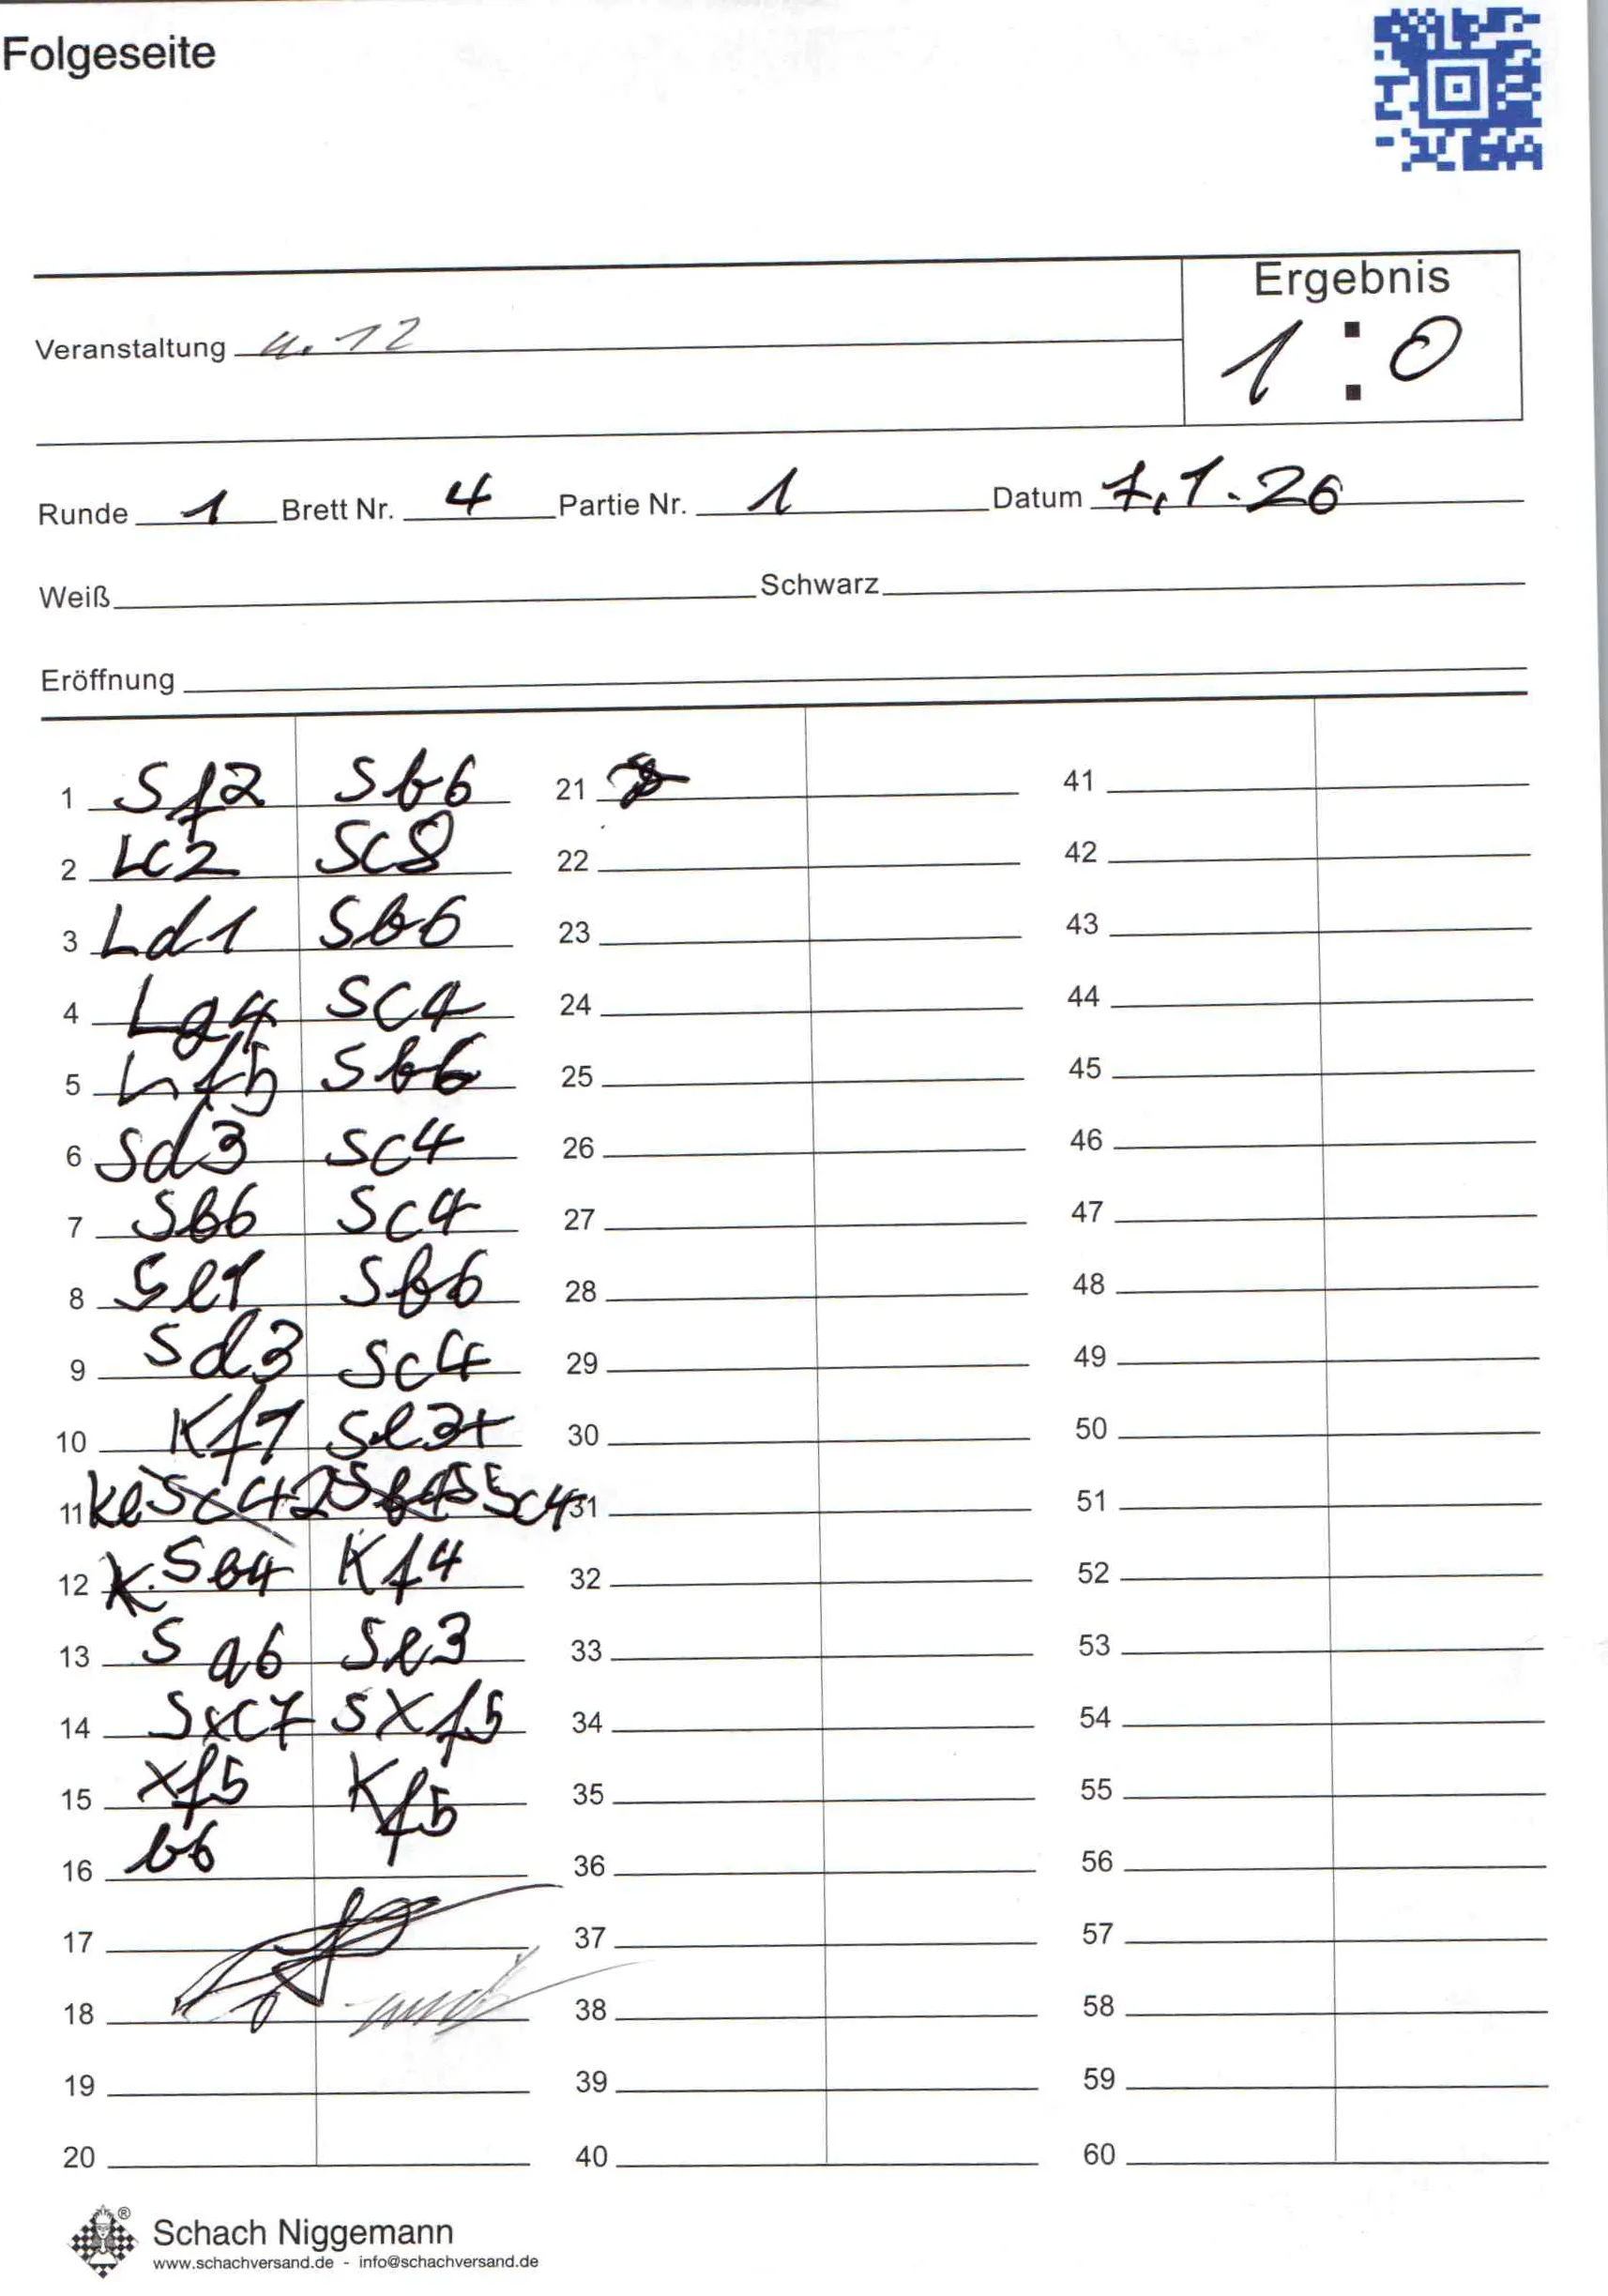 Folgeseite
Ergebnis
Veranstaltung u. 12
1 : 0
Runde 1 Brett Nr. 4 Partie Nr. 1 Datum 7.1.26
Weiß Schwarz
Eröffnung
1 Sf2 Sb6 21 41
2 Lc2 Sc8 22 42
3 Ld1 Sb6 23 43
4 Lg4 Sc4 24 44
5 Lf5 Sb6 25 45
6 Sd3 Sc4 26 46
7 Sb6 Sc4 27 47
8 Se1 Sb6 28 48
9 Sd3 Sc4 29 49
10 Kf1 Se3+ 30 50
11 Ke2 Sc4 31 51
12 Sb4 Kf4 32 52
13 Sa6 Se3 33 53
14 Sxc7 Sxf5 34 54
15 xf5 Kf5 35 55
16 b6 36 56
17 37 57
18 38 58
19 39 59
20 40 60
Schach Niggemann
®
www.schachversand.de - info@schachversand.de